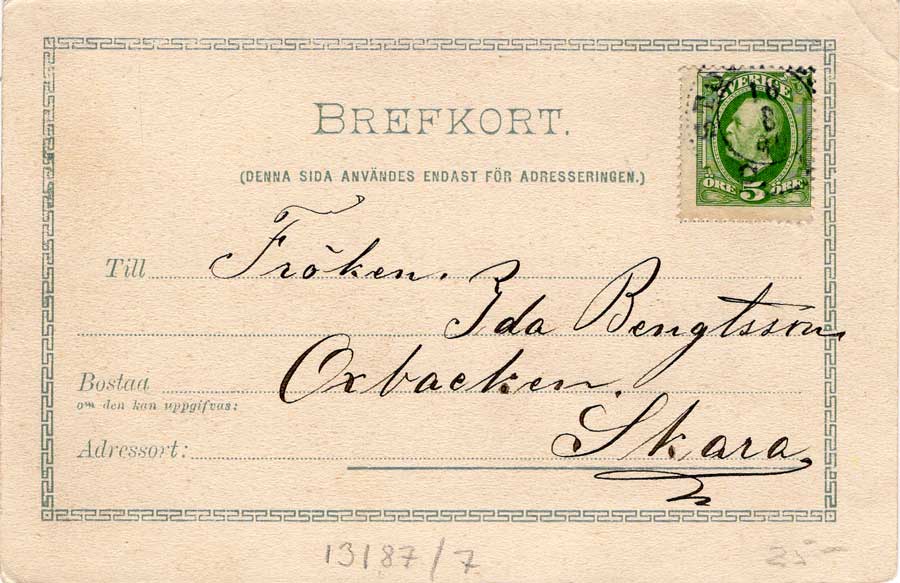 BREFKORT.
(DENNA SIDA ANVÄNDES ENDAST FÖR ADRESSERINGEN.)
SVERIGE
ÖRE 5 ÖRE
Till Fröken.
Ida Bengtsson
Bostad Oxbacken.
om den kan uppgifvas:
Adressort: Skara,
13/87/7
25-